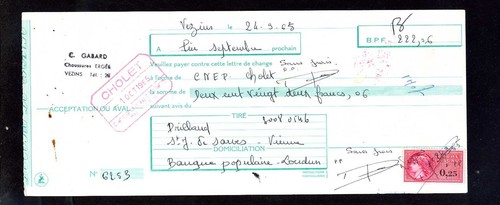 Vezins le 24-9-65
A fin septembre prochain
B.P.F. 222,06
C. GABARD
Chaussures
VEZINS Tél. : 26
veuillez payer contre cette lettre de change Sans frais
la somme de C.N.E.P. Cholet
CHOLET
deux cent vingt deux francs, 06
ACCEPTATION OU AVAL
suivant avis du
TIRÉ
St J. de Sauves - Vienne
DOMICILIATION
Sans frais
Banque populaire - Loudun
0,25
N° 6253